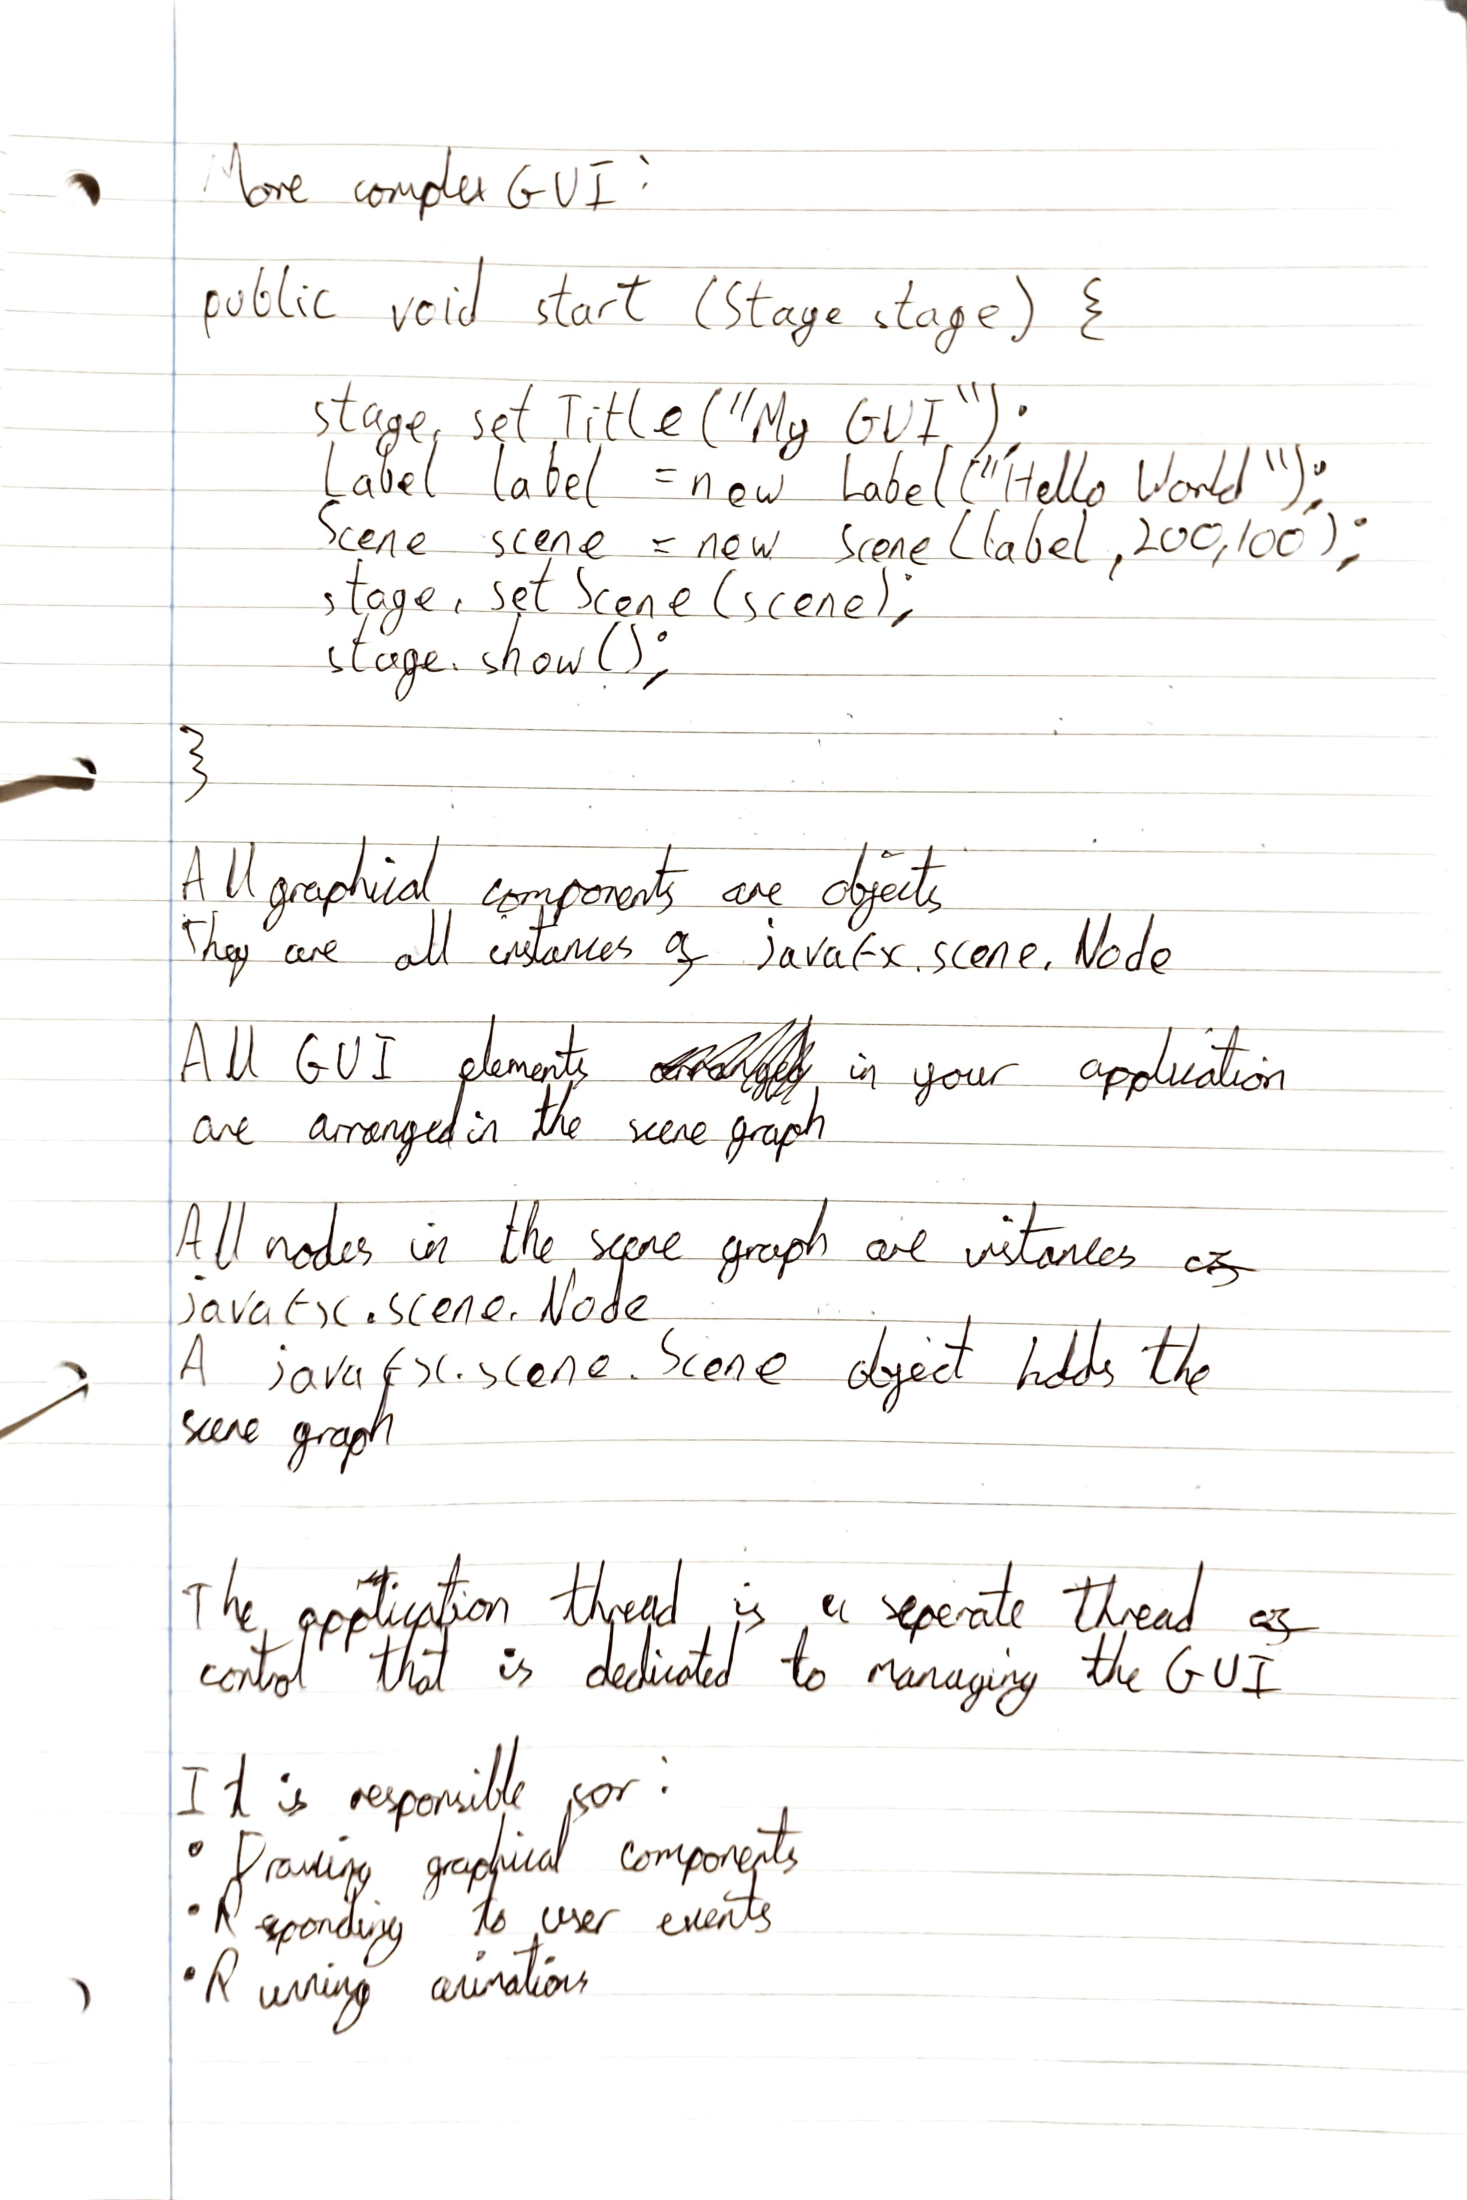 More complex GUI:
public void start (Stage stage) {
stage.setTitle("My GUI");
Label label = new Label("Hello World");
Scene scene = new Scene(label, 200, 100);
stage.setScene(scene);
stage.show();
}
All graphical components are objects
They are all instances of javafx.scene.Node
All GUI elements in your application
are arranged in the scene graph
All nodes in the scene graph are instances of
javafx.scene.Node
A javafx.scene.Scene object holds the
scene graph
The application thread is a seperate thread of
control that is dedicated to managing the GUI
It is responsible for:
• Drawing graphical components
• Responding to user events
• Running animations